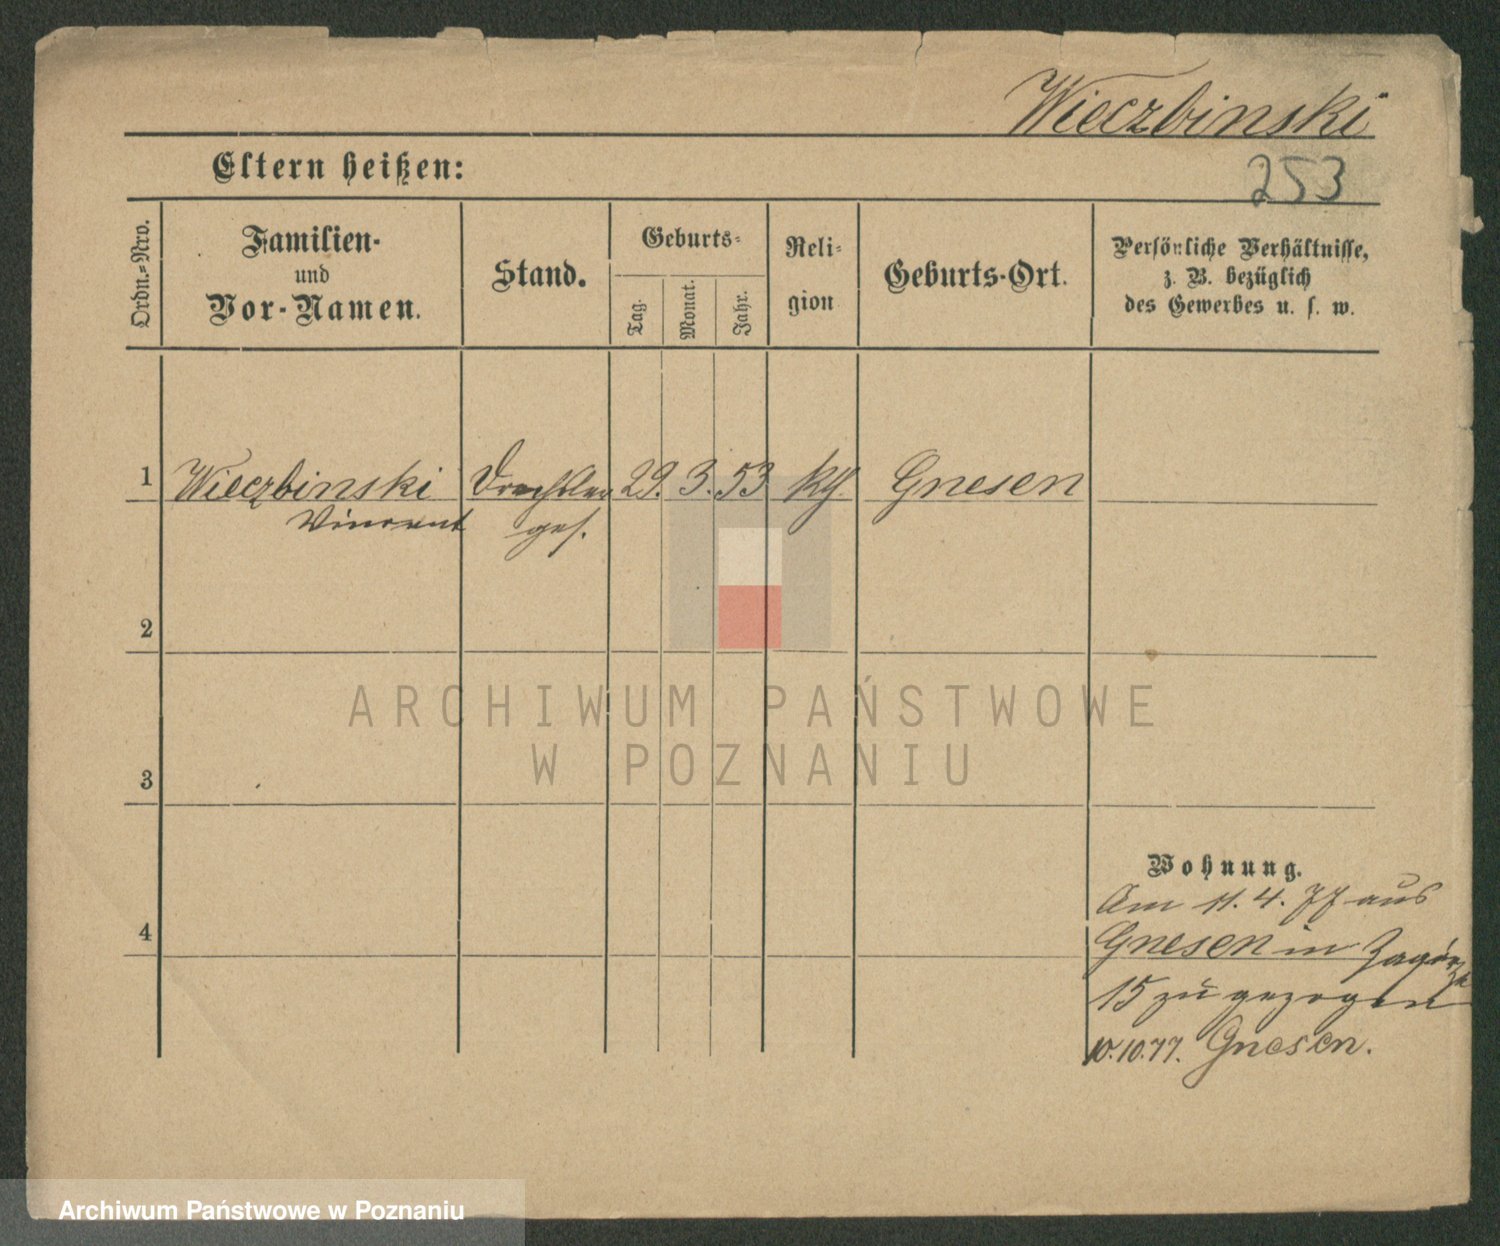 Wieczbinski
Eltern heißen:
253
Ordn.-Nro.
Familien-
und
Vor-Namen.
Stand.
Geburts-
Tag.
Monat.
Jahr.
Reli-
gion
Geburts-Ort.
Persönliche Verhältnisse,
z. B. bezüglich
des Gewerbes u. s. w.
1 Wieczbinski Drechsler 29. 3. 53 kth. Gnesen
Vincent ges.
2
3
4
Wohnung.
Am 11. 4. 77 aus
Gnesen in Zagórze
15 zugezogen
10.10.77. Gnesen.
ARCHIWUM PAŃSTWOWE
W POZNANIU
Archiwum Państwowe w Poznaniu